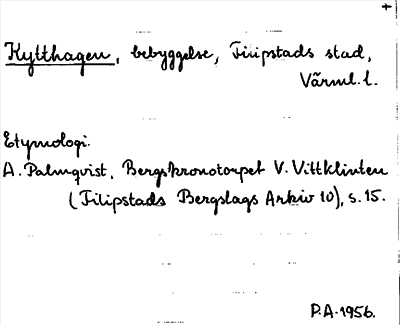 Kytthagen, bebyggelse, Filipstads stad,
Värml. l.
Etymologi.
A. Palmqvist, Bergskronotorpet V. Vittklinten
(Filipstads Bergslags Arkiv 10), s. 15.
P.A. 1956.